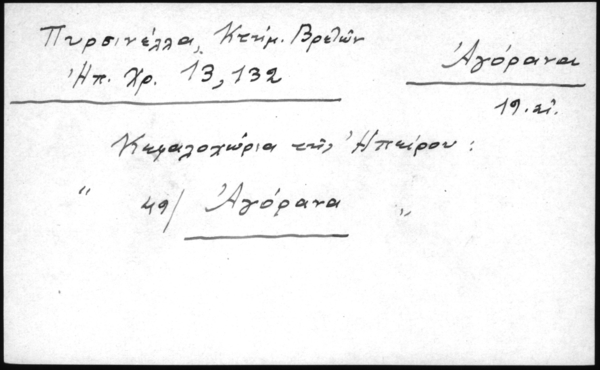 Πυρσινέλλα, Κτημ. Βρετῶν
Ἠπ. Χρ. 13, 132
Ἀγόρανα
19. αἰ.
Κεφαλοχώρια τῆς Ἠπείρου:
“ 49/ Ἀγόρανα ”